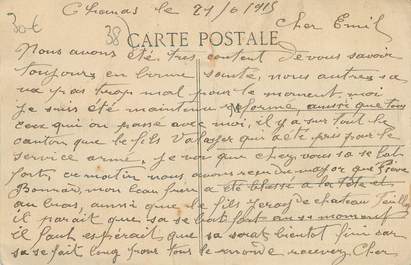 30€
38
Chanas le 21/6/1915
Cher Emil
CARTE POSTALE
Nous avons été tres content de vous savoir
toujours en bonne santé, nous autres sa
va pas trop mal pour le moment, moi
je suis été maintenu réformé, aussie que tous
ceux qui on passé avec moi, il y a sur tout le
canton que le fils qui a été pris pour le
service armé, je voi que chez vous sa se bat
fort, ce matin nous avons du major que
Bonnar, mon beau frere a été blessé a la tête et
au bras, aussie que le fils de chateau
il parait que sa se but fort en se moment
il faut espérait que sa serat bientot fini car
sa se fait long pour tous le monde recevez Cher